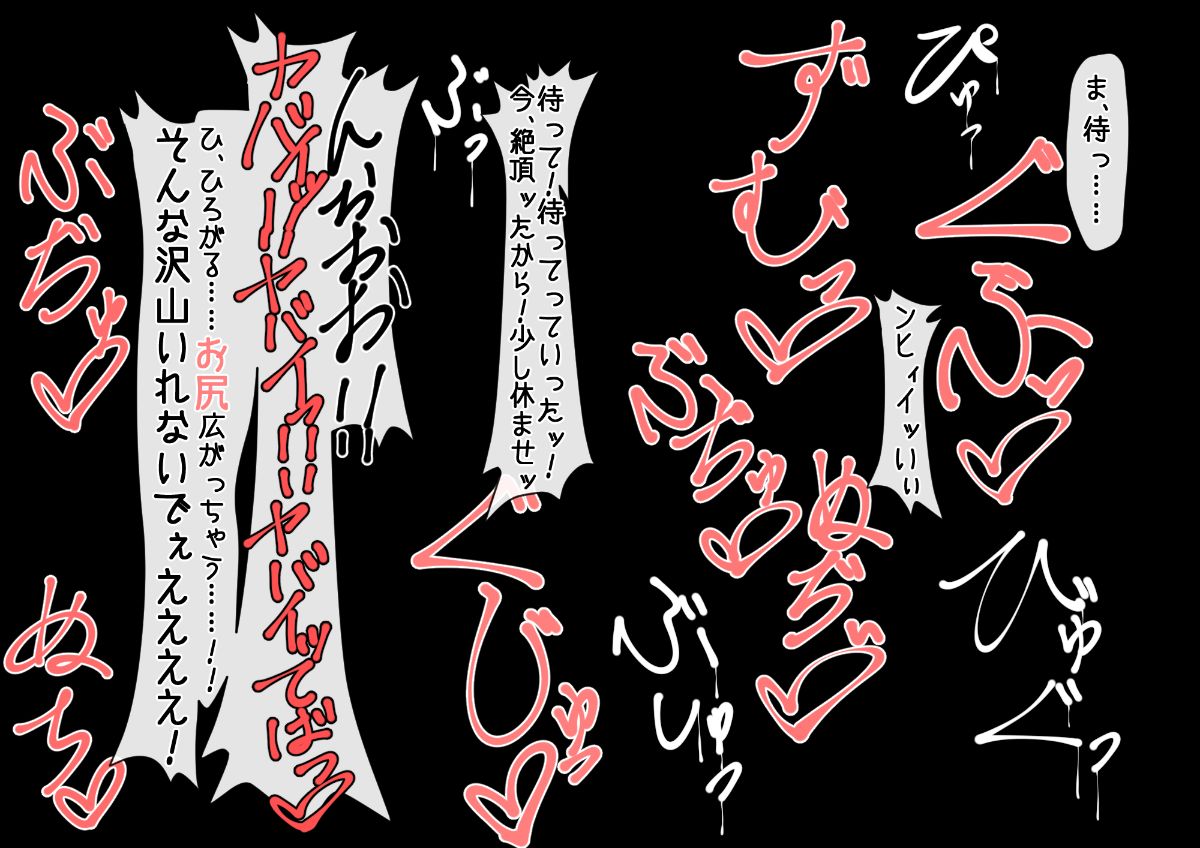 ま、待っ……
ぴゅっ
ぐぷッ♡
ずむっ♡
ンヒィイッいぃ
ぶちゅ♡
ぬぢゅ♡
びゅぐっ
ぶーっ
待って！待ってっていったッ！
今、絶頂ッたから！少し休ませッ
ぶーじゅっ
ぐじゅっ♡
ん、おおお！！
ヤバイッ！！ヤバイィ！！ヤバイッてばっ♡
ひ、ひろがる……お尻広がっちゃう……！！
そんな沢山いれないでぇえええ！
ぶぢゅっ♡
ぬちっ♡